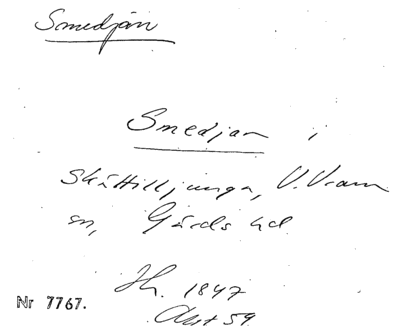 Smedjan
Smedjan i
Skättilljunga, V. Vram
sn, Gärds hd.
Jh. 1847
Akt 59.
Nr 7767.